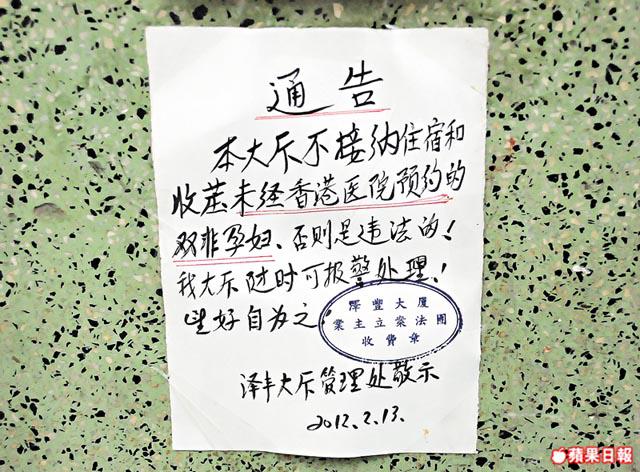 通告
本大厦不接纳住宿和
收茬未经香港医院预约的
双非孕妇、否则是违法的！
我大厦随时可报警处理！
望好自为之！
澤豐大廈
業主立案法團
收費章
泽丰大厦管理处敬示
2012.2.13.
蘋果日報